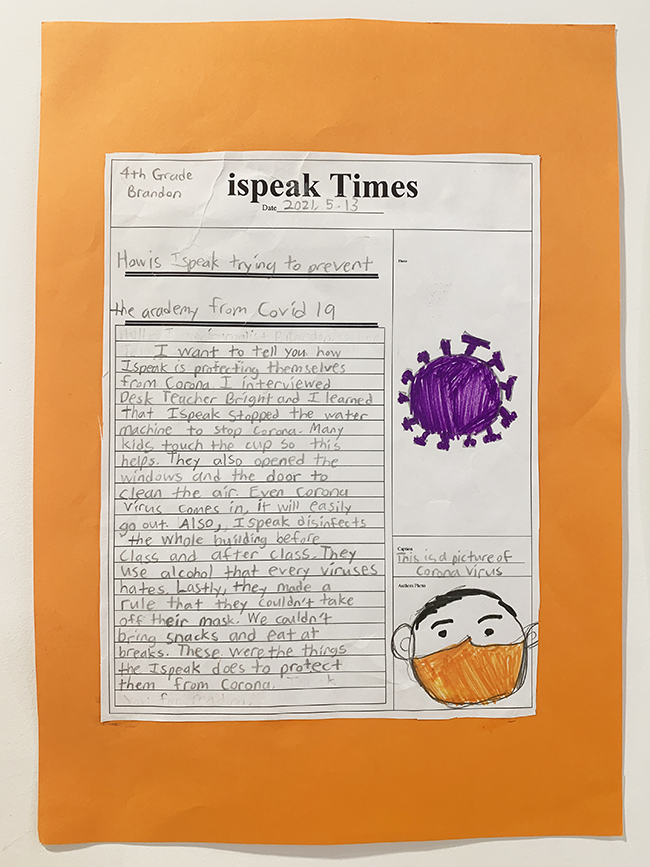 4th Grade
Brandon
ispeak Times
Date 2021. 5-13
How is Ispeak trying to prevent
the academy from Covid 19
I want to tell you how
Ispeak is protecting themselves
from Corona. I interviewed
Desk Teacher Bright and I learned
that Ispeak stopped the water
machine to stop corona. Many
kids touch the cup so this
helps. They also opened the
windows and the door to
clean the air. Even Corona
virus comes in, it will easily
go out. Also, Ispeak disinfects
the whole building before
class and after class. They
use alcohol that every viruses
hates. Lastly, they made a
rule that they couldn't take
off their mask. We couldn't
bring snacks and eat at
breaks. These were the things
the Ispeak does to protect
them from Corona.
Photo
Caption
This is a picture of
Corona Virus
Authors Photo